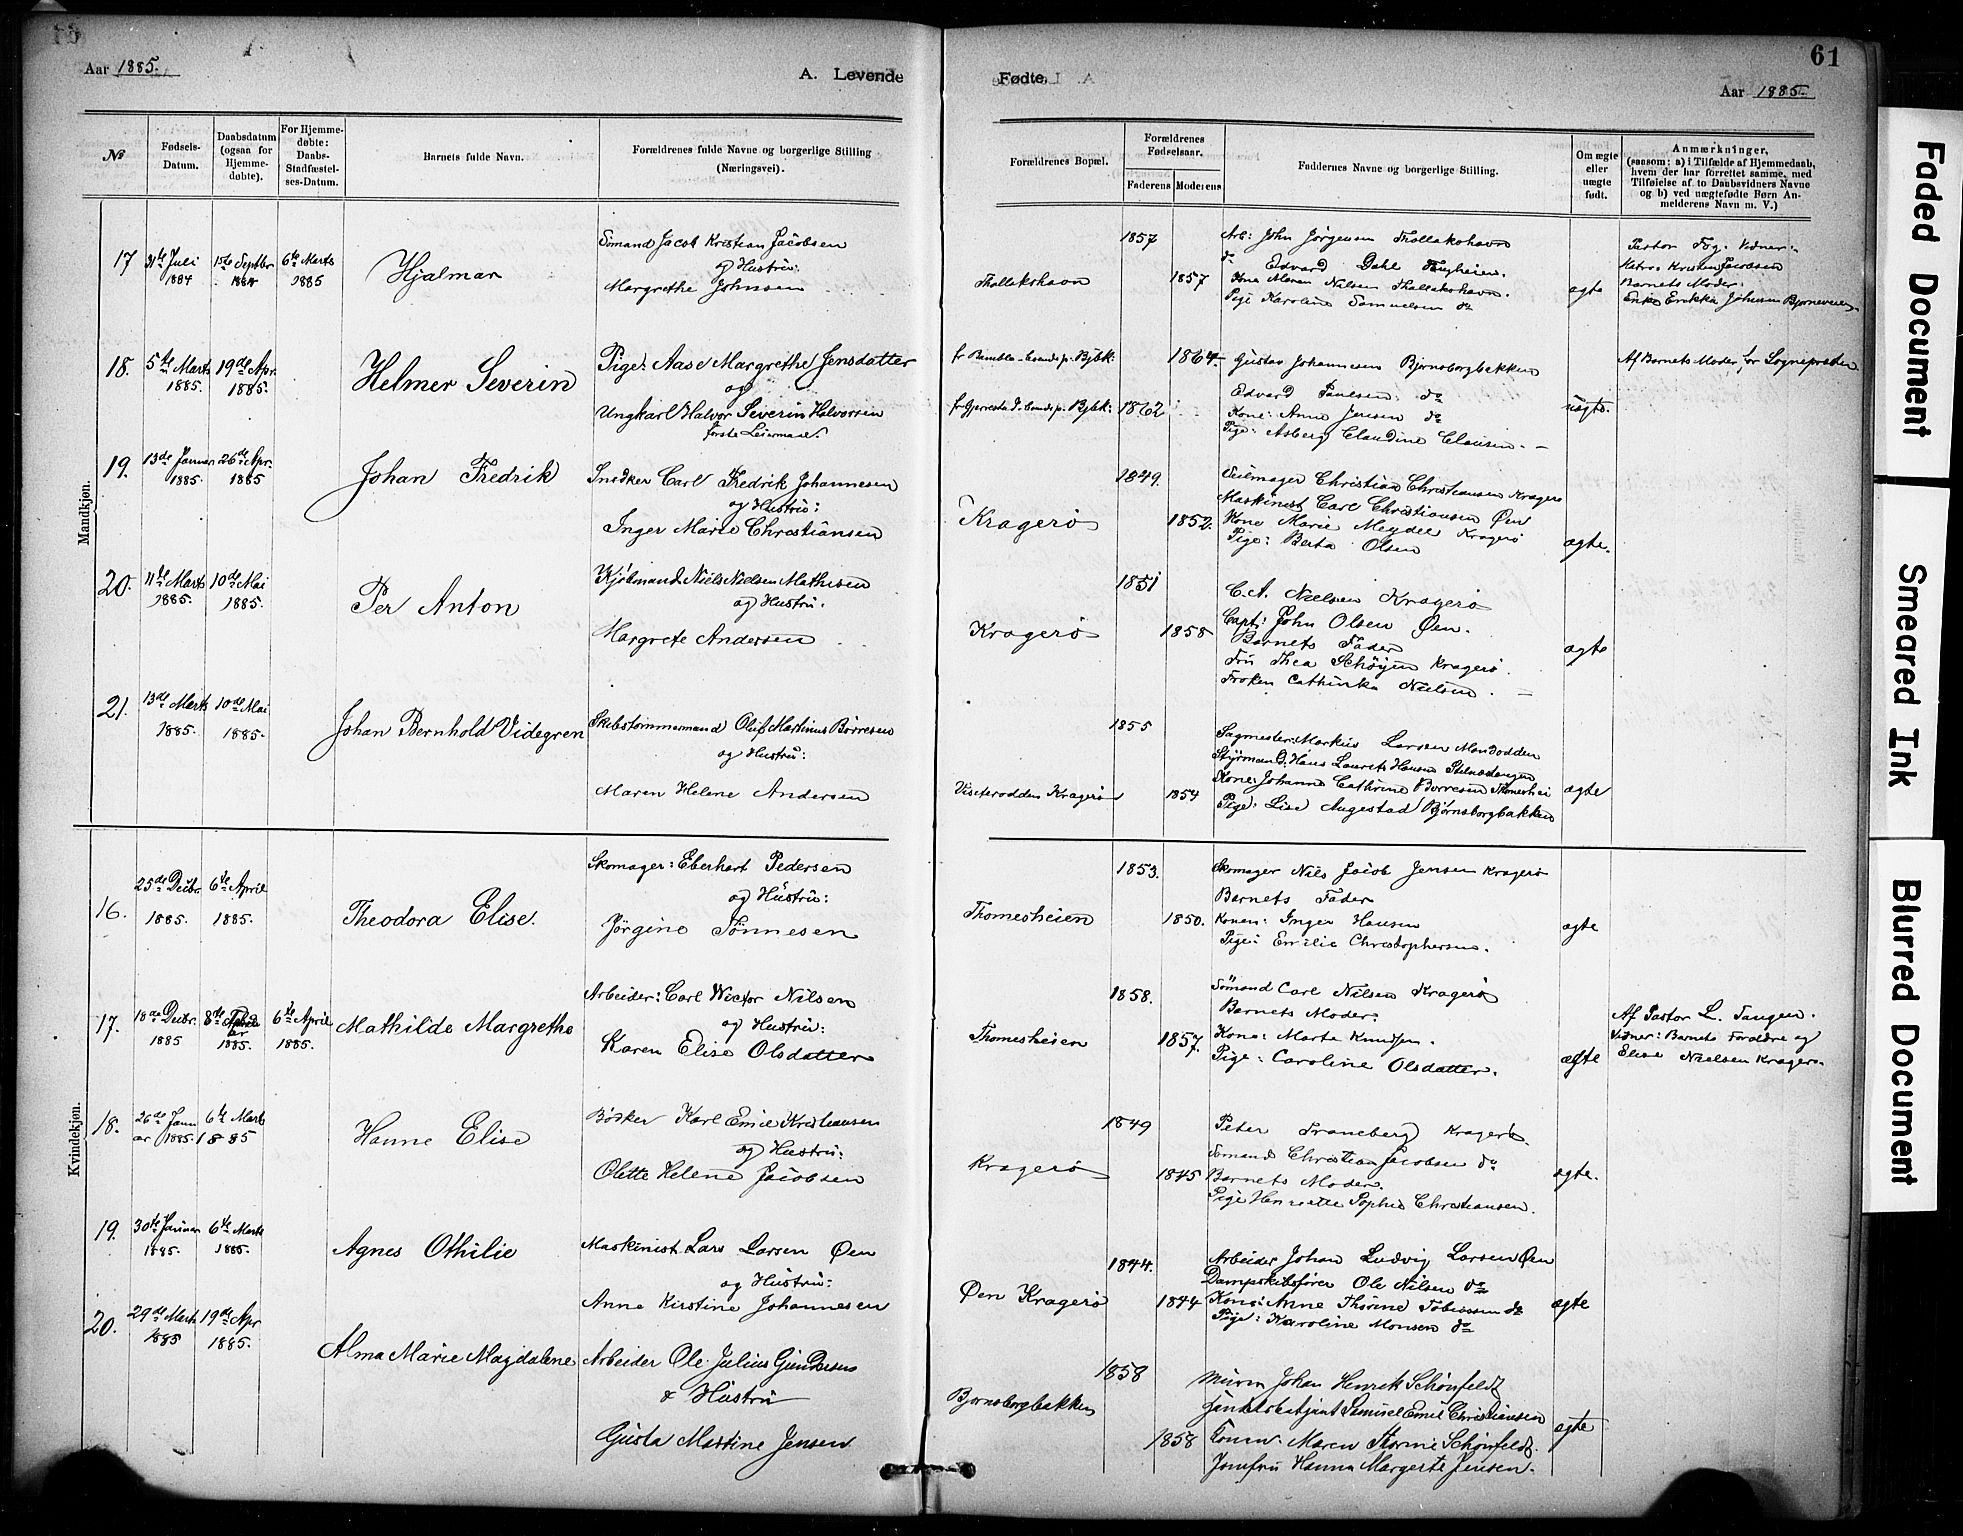 61
Aar 1885.
A. Levende
Fødte.
Aar 1885.
№
Fødsels-Datum.
Daabsdatum (ogsaa for Hjemme-døbte).
For Hjemme-døbte: Daabs-Stadfæstel-ses-Datum.
Barnets fulde Navn.
Forældrenes fulde Navne og borgerlige Stilling (Næringsvei).
Forældrenes Bopæl.
Forældrenes Fødselsaar.
Faderens
Moderens
Faddernes Navne og borgerlige Stilling.
Om ægte eller uægte født.
Anmærkninger,
(saasom: a) i Tilfælde af Hjemmedaab,
hvem der har forrettet samme, med
Tilføielse af to Daabsvidners Navne
og b) ved uægtefødte Børn An-
melderens Navn m. V.)
Mandkjøn.
17 31te Juli 1884 1884 6te Marts 1885
Hjalmar
Sömand Jacob Kristian Jacobsen
og Hustru:
Margrethe Johnsen
Thallakshavn
1857
1857
Arb: John Jörgensen Thallakshavn
do Edvard Dahl
Kone Maren Nilsen Thallakshavn.
Pige Karoline Samuelsen do
ægte
Barnets Moder.
18. 5te Marts 1885. 19de Apr. 1885.
Helmer Severin
Pige: Aase Margrethe Jensdatter
og
Ungkarl Halvor Severin Halvorsen
første Leiermaal.
1864
1862
Gustav Johannesen Bjørnsborgbakken
Edvard Paulsen do
Kone: Anne Jensen do
Pige: Asberg Claudine Clausen. —
uægte.
Af Barnets Moder, for Sognepræsten
19. 13de Januar 1885. 26de Apr. 1885
Johan Fredrik
Snedker Carl Fredrik Johannesen
og Hustru:
Inger Marie Christiansen
Kragerö
1849.
1852.
Seilmager Christian Christiansen Kragerö
Maskinist Carl Christiansen Øen
Kone Marie Meydel Kragerö
Pige: Berta Olsen
ægte.
20. 11te Marts 1885. 10de Mai 1885.
Per Anton
Kjöbmand Niels Nielsen Mathisen
og Hustru.
Margrete Andersen
Kragerö
1851
1858
C. A. Nielsen Kragerö
Capt: John Olsen Øen.
Barnets Fader
Fru Thea Schöyen Kragerö.
Frøken Cathinka Nielsen. —
ægte
21. 13de Marts 1885. 10de Mai 1885.
Johan Bernhold Videgren
Skibstømmermand Oluf Martinus Börresen
og Hustru:
Maren Helene Andersen
Kragerö
1855
1854
Sagmester: Markus Larsen
Styrmand: Hans Laurets Hansen
Kone: Johanne Cathrine Borresen Thomeshei
Pige: Lise Augestad Bjørnsborgbakken
ægte
Kvindekjøn.
16. 25de Decbr. 1885. 6te April 1885.
Theodora Elise.
Skomager: Eberhart Pedersen
og Hustru:
Jörgine Tönnesen
Thomesheien
1853.
1850.
Skomager Nils Jacob Jensen Kragerö
Barnets Fader
Konen: Inger Hansen
Pige: Emilie Christophersen.
ægte
17. 18de Decbr. 1885 1885. 6te April 1885.
Mathilde Margrethe
Arbeider: Carl Victor Nilsen
og Hustru:
Karen Elise Olsdatter
Thomesheien
1858.
1857.
Sömand Carl Nilsen Kragerö
Barnets Moder.
Kone: Marte Knudsen.
Pige: Caroline Olsdatter.
ægte
Af Pastor L. Tangen.
Vidner: Barnets Forældre og
Elise Nielsen Kragerø.
18. 26de Januar 1885. 6te Marts 1885
Hanne Elise
Bödker Karl Emil Kristiansen
og Hustru:
Olette Helene Jacobsen
Kragerö
1849
1845
Peter Traneberg Kragerö.
Sömand Christian Jacobsen do
Barnets Moder.
Pige Henriette Sophie Christiansen.
ægte.
19. 30te Januar 1885. 6te Marts 1885.
Agnes Othilie
Maskinist. Lars Larsen Øen
og Hustru:
Anne Kirstine Johannesen
Øen Kragerö
1844.
1844
Arbeider Johan Ludvig Larsen Øen
Dampskibsfører Ole Nilsen do
Kone: Anne Thorine Tobiassen do
Pige: Karoline Monsen do
ægte
20. 29de Marts 1885 19de Apr 1885.
Alma Marie Magdalene
Arbeider Ole Julius Gundersen
& Hustru
Gusta Martine Jensen
Bjornsborgbakken
1858
1858
Murer Johan Henrik Schönfeldt
Samuel Emil Christiansen
Konen. Maren Thorine Schönfeldt
Jomfru Hanna Margerte Jensen.
ægte
Faded Document
Smeared Ink
Blurred Document